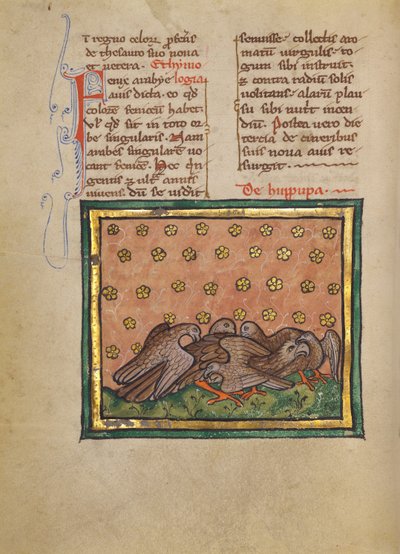 t regno celoꝝ ꝓferēs
de thesauro suo noua
et uetera. Ethymo
Fenix arabye logia
auis dicta. eo qd̄
colorē feniceū habet.
ul̕ qd̄ sit in toto or
be singularis. Nam
arabes singularē uo
cant fenicē. Hec qin
gentis ⁊ ultᵃ annis
uiuens. dū se uidit
senuisse. collectis aro
matū uirgulis. ro
gum sibi instruit.
⁊ contra radiū solis
uolitans. alarū plau
su sibi nutͥt incen
diū. Postea uero die
tercia de cineribus
suis noua auis re
surgit.
De huppupa.